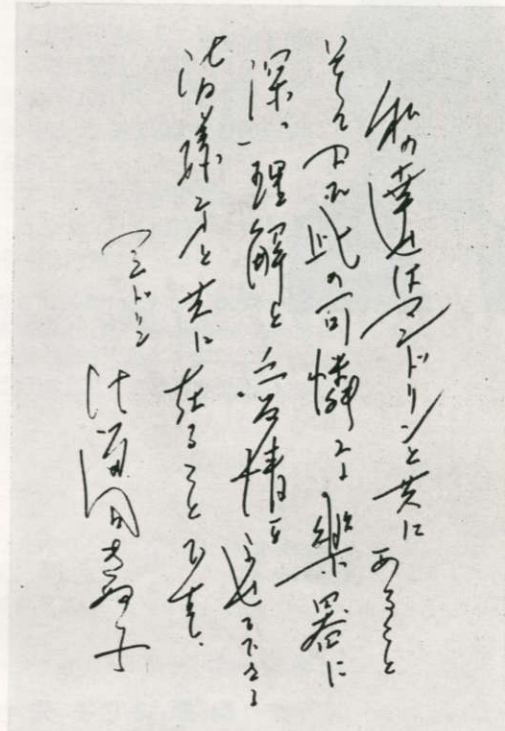 私の幸せはマンドリンと共にあること
そして又此の可憐な楽器に
深い理解と愛情を寄せて下さる
皆様方と共に在ること です。
マンドリン 子